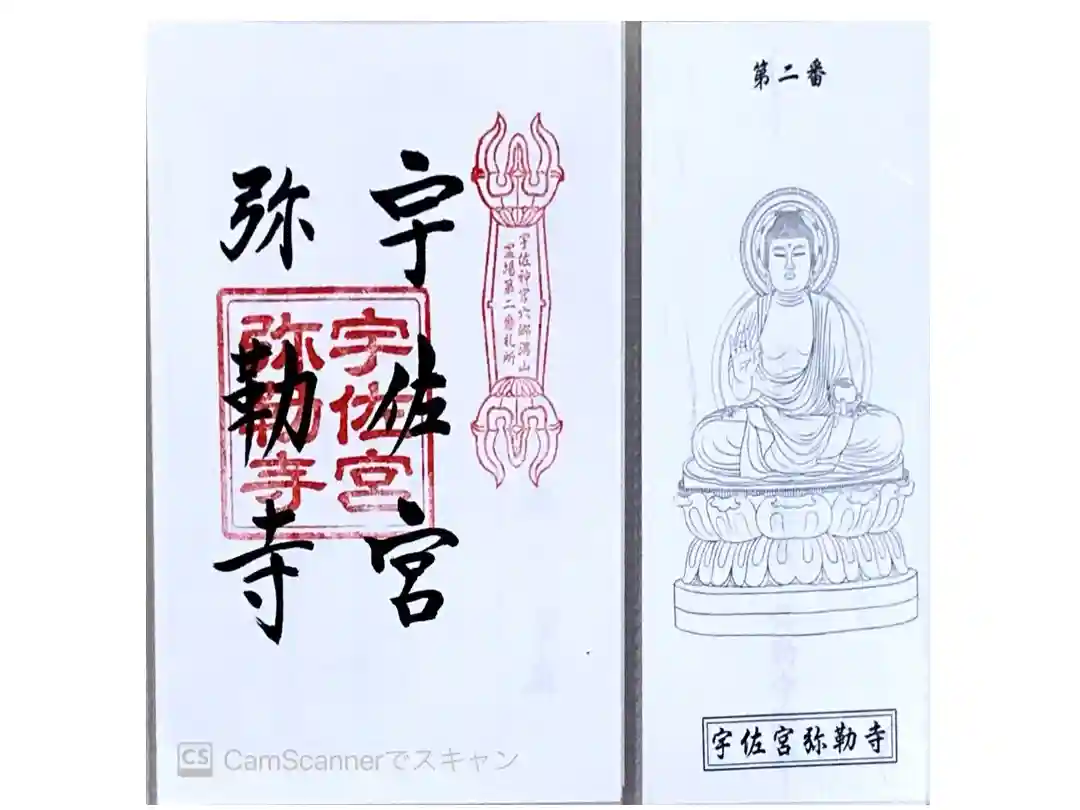 宇佐神宮六郷満山
霊場第二番札所
宇佐宮
弥勒寺
宇佐宮
弥勒寺
第二番
宇佐宮弥勒寺
CS CamScannerでスキャン